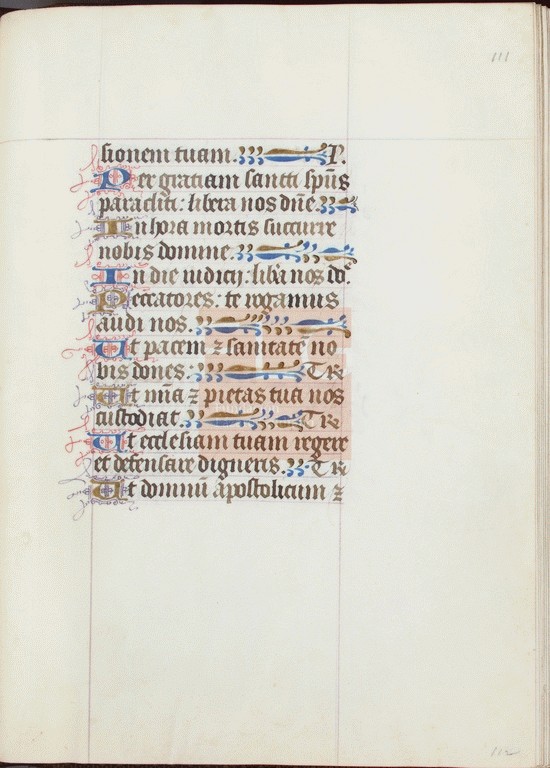 111
sionem tuam. P.
Per gratiam sancti sp̄us
paracliti: libera nos dn̄e.
In hora mortis succurre
nobis domine.
In die iudicij: liba nos do.
Peccatores: te rogamus
audi nos.
Ut pacem ⁊ sanitatē no
bis dones: T R
Ut mīa ⁊ pietas tua nos
custodiat. T R
Ut ecclesiam tuam regere
et defensare digneris. T R
Ut domnū apostolicum ⁊
112